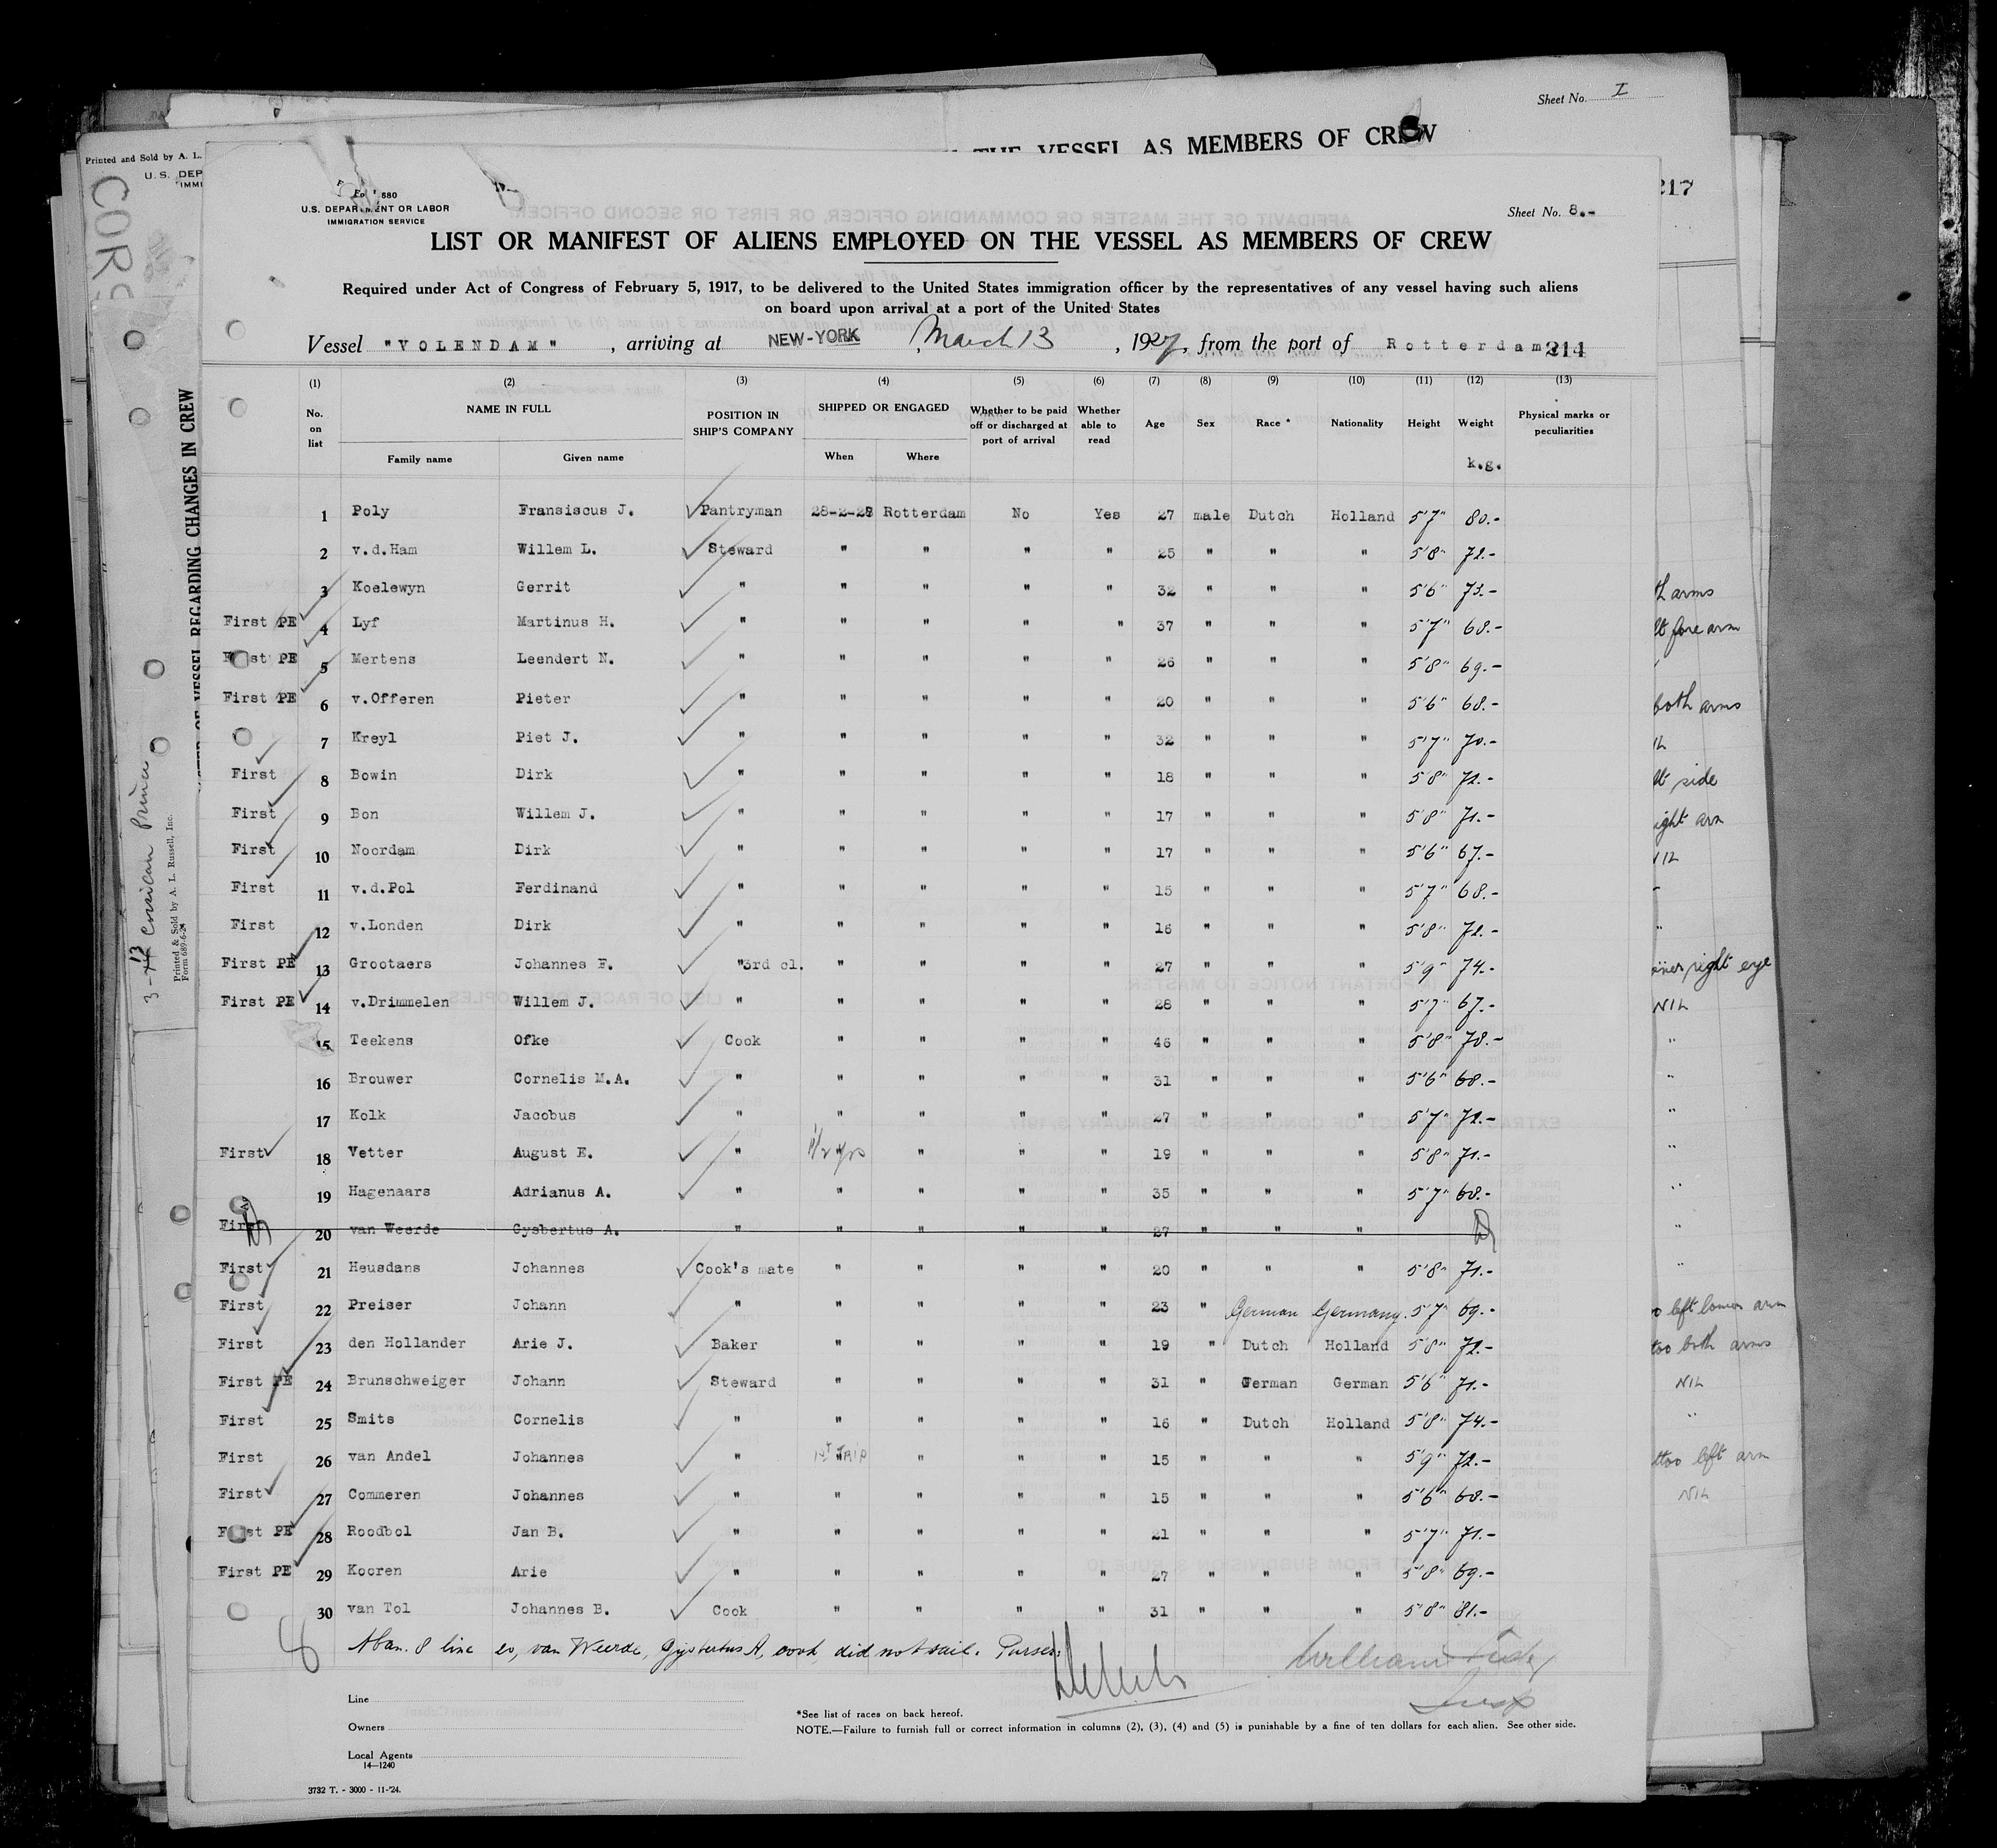 Sheet No. I
THE VESSEL AS MEMBERS OF CREW
Printed and Sold by A. L.
U. S. DEP
217
CORS
680
U.S. DEPARTMENT OR LABOR
IMMIGRATION SERVICE
Sheet No. 8.-
LIST OR MANIFEST OF ALIENS EMPLOYED ON THE VESSEL AS MEMBERS OF CREW
Required under Act of Congress of February 5, 1917, to be delivered to the United States immigration officer by the representatives of any vessel having such aliens
on board upon arrival at a port of the United States
Vessel "VOLENDAM", arriving at NEW-YORK, March 13, 1927, from the port of Rotterdam 214
(1) (2) (3) (4) (5) (6) (7) (8) (9) (10) (11) (12) (13)
No. on list NAME IN FULL POSITION IN SHIP'S COMPANY SHIPPED OR ENGAGED Whether to be paid off or discharged at port of arrival Whether able to read Age Sex Race * Nationality Height Weight Physical marks or peculiarities
Family name Given name When Where k.g.
1 Poly Fransiscus J. Pantryman 28-2-27 Rotterdam No Yes 27 male Dutch Holland 5'7" 80.-
2 v.d.Ham Willem L. Steward " " " " 25 " " " 5'8" 72.-
3 Koelewyn Gerrit " " " " " 32 " " " 5'6" 73.-
First PE 4 Lyf Martinus H. " " " " " 37 " " " 5'7" 68.-
First PE 5 Mertens Leendert N. " " " " " 26 " " " 5'8" 69.-
First PE 6 v.Offeren Pieter " " " " " 20 " " " 5'6" 68.-
7 Kreyl Piet J. " " " " " 32 " " " 5'7" 70.-
First 8 Bowin Dirk " " " " " 18 " " " 5'8" 72.-
First 9 Bon Willem J. " " " " " 17 " " " 5'8" 71.-
First 10 Noordam Dirk " " " " " 17 " " " 5'6" 67.-
First 11 v.d.Pol Ferdinand " " " " " 15 " " " 5'7" 68.-
First 12 v.Londen Dirk " " " " " 16 " " " 5'8" 72.-
First PE 13 Grootaers Johannes F. "3rd cl. " " " " 27 " " " 5'9" 74.-
First PE 14 v.Drimmelen Willem J. " " " " " 28 " " " 5'7" 67.-
15 Teekens Ofke Cook " " " " 46 " " " 5'8" 78.-
16 Brouwer Cornelis M.A. " " " " " 31 " " " 5'6" 68.-
17 Kolk Jacobus " " " " " 27 " " " 5'7" 72.-
First 18 Vetter August E. " 1 1/2 yrs " " " 19 " " " 5'8" 71.-
19 Hagenaars Adrianus A. " " " " " 35 " " " 5'7" 68.-
First 20 van Weerde Gysbertus A. " " " " " 27 " " "
First 21 Heusdans Johannes Cook's mate " " " " 20 " " " 5'8" 71.-
First 22 Preiser Johann " " " " " 23 " German Germany. 5'7" 69.-
First 23 den Hollander Arie J. Baker " " " " 19 " Dutch Holland 5'8" 72.-
First PE 24 Brunschweiger Johann Steward " " " " 31 " German German 5'6" 71.-
First 25 Smits Cornelis " " " " " 16 " Dutch Holland 5'8" 74.-
First 26 van Andel Johannes " 1st TRIP " " " 15 " " " 5'9" 72.-
First 27 Commeren Johannes " " " " " 15 " " " 5'6" 68.-
First PE 28 Roodbol Jan B. " " " " " 21 " " " 5'7" 71.-
First PE 29 Kooren Arie " " " " " 27 " " " 5'8" 69.-
30 van Tol Johannes B. Cook " " " " 31 " " " 5'8" 81.-
Man. 8 line 20, van Weerde, Gysbertus A, cook did not sail. Purser:
William
Insp
Line
Owners
Local Agents
14—1240
*See list of races on back hereof.
NOTE.—Failure to furnish full or correct information in columns (2), (3), (4) and (5) is punishable by a fine of ten dollars for each alien. See other side.
3732 T. - 3000 - 11-'24.
VESSEL REGARDING CHANGES IN CREW
Printed & Sold by A. L. Russell, Inc.
Form 689-6-24
3-13 Corsican Prince
arms
fore arm
both arms
side
right arm
NIL
right eye
NIL
left lower arm
too both arms
NIL
ttoo left arm
NIL